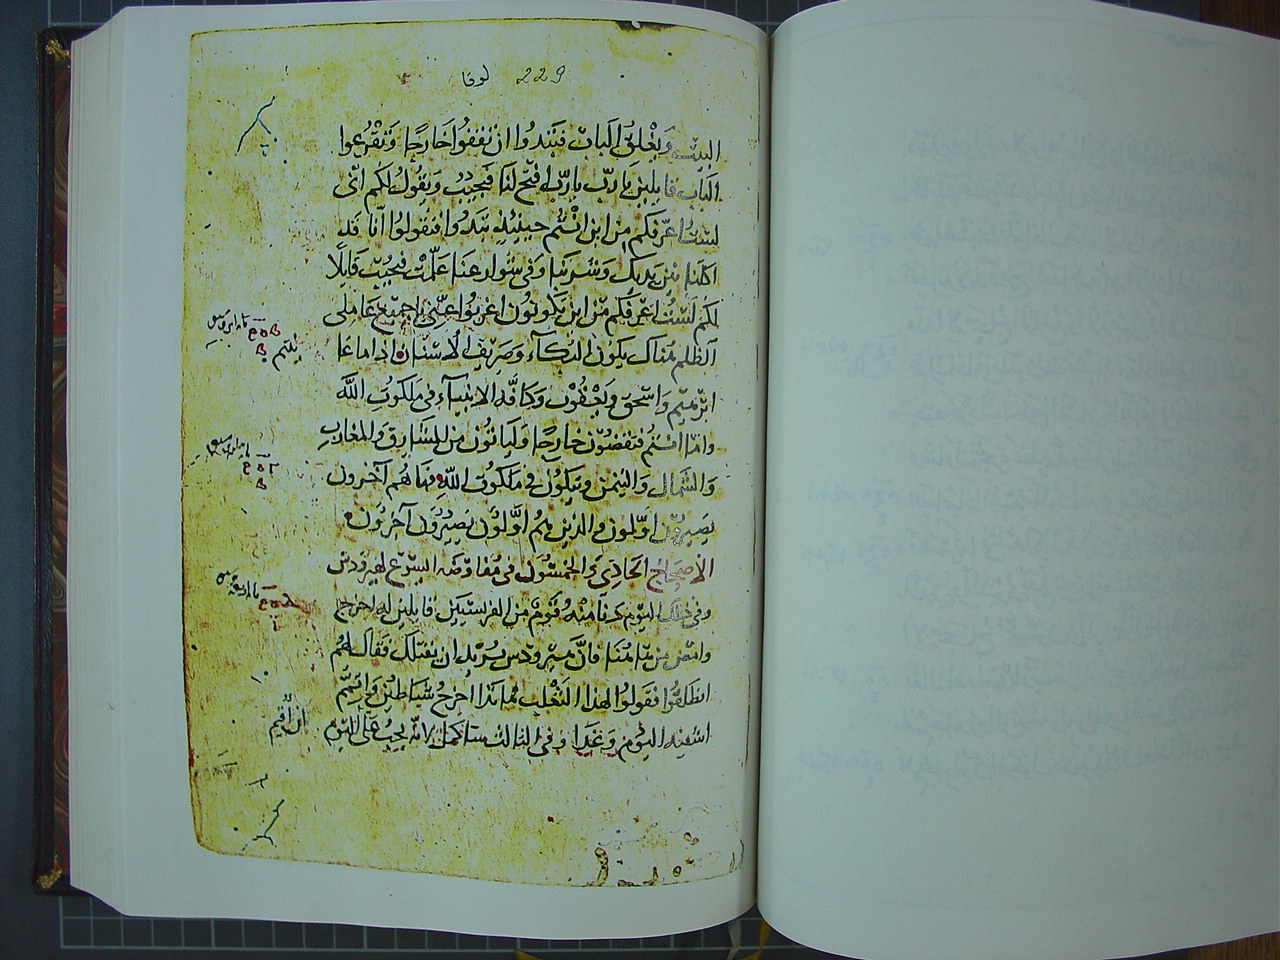 لوقا 229
البيت ويغلق الباب فتبتدوا ان تقفوا خارجًا وتقرعوا
الباب قايلين يا ربّ يا ربّ افتح لنا فيجيب ويقول لكم انى
لست اعرفكم من اين انتم حينيذٍ تبدوا فتقولوا انّا قد
اكلنا بين يديك وشربنا وفى شوارعنا علّمت فيجيب قايلًا
لكم لست اعرفكم من اين تكونون اغربوا عنّى يا جميع عاملى
الظلم هناك يكون البكآء وصريف الاسنان اذا ما عا
ينتم
ابرهيم واسحق ويعقوب وكافّة الانبيآء فى ملكوت الله
وامّا انتم فتقصون خارجًا وليأتون من المشارق والمغارب
والشمال واليمن ويتكون فى ملكوت الله فها هم آخرون
يصيرون اوّلون والذين هم اوّلون يصيرون آخرون
الاصحاح الحادي والخمسون فى مفاوضة اليسوع لهيرودس
وفى ذلك اليوم دنا منه قوم من الفريسيين قايلين له اخرج
وامض من هاهنا فانّ هيرودس يريد ان يقتلك فقال لهم
انطلقوا فقولوا لهذا الثعلب هانذا اخرج شياطين واتمّم
اشفيه اليوم وغدًا وفى الثالث ساكمل لانّه يجب على اليوم
ان اقيم